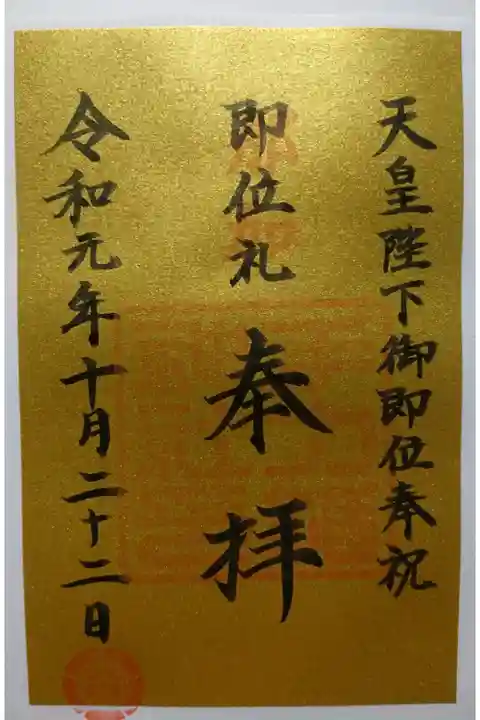 天皇陛下御即位奉祝
即位礼 奉拝
令和元年十月二十二日